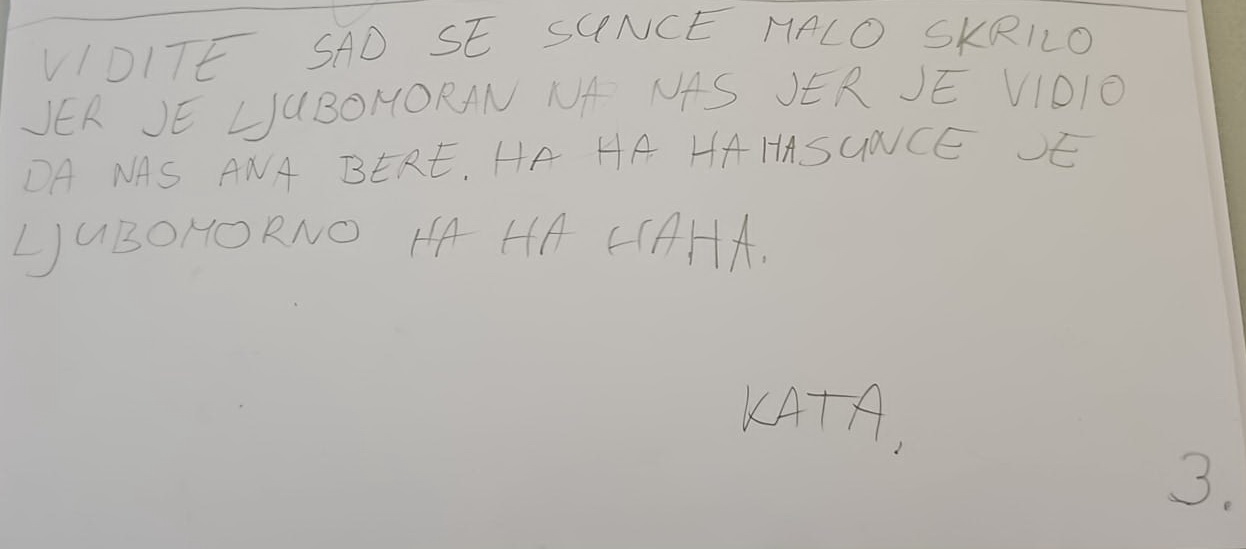 VIDITE SAD SE SUNCE MALO SKRILO
JER JE LJUBOMORAN NA NAS JER JE VIDIO
DA NAS ANA BERE. HA HA HAHASUNCE JE
LJUBOMORNO HA HA HAHA.
KATA,
3.